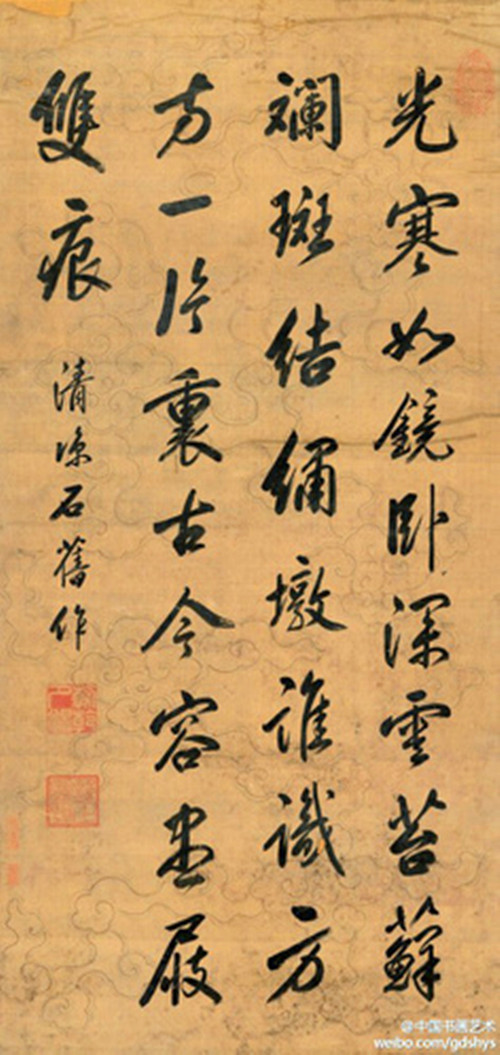 光寒如鏡卧深雲苔蘚
斕斑結繡墩誰識方
方一片裏古今容盡屐
雙痕
清涼石舊作
@中国书画艺术
weibo.com/gdshys